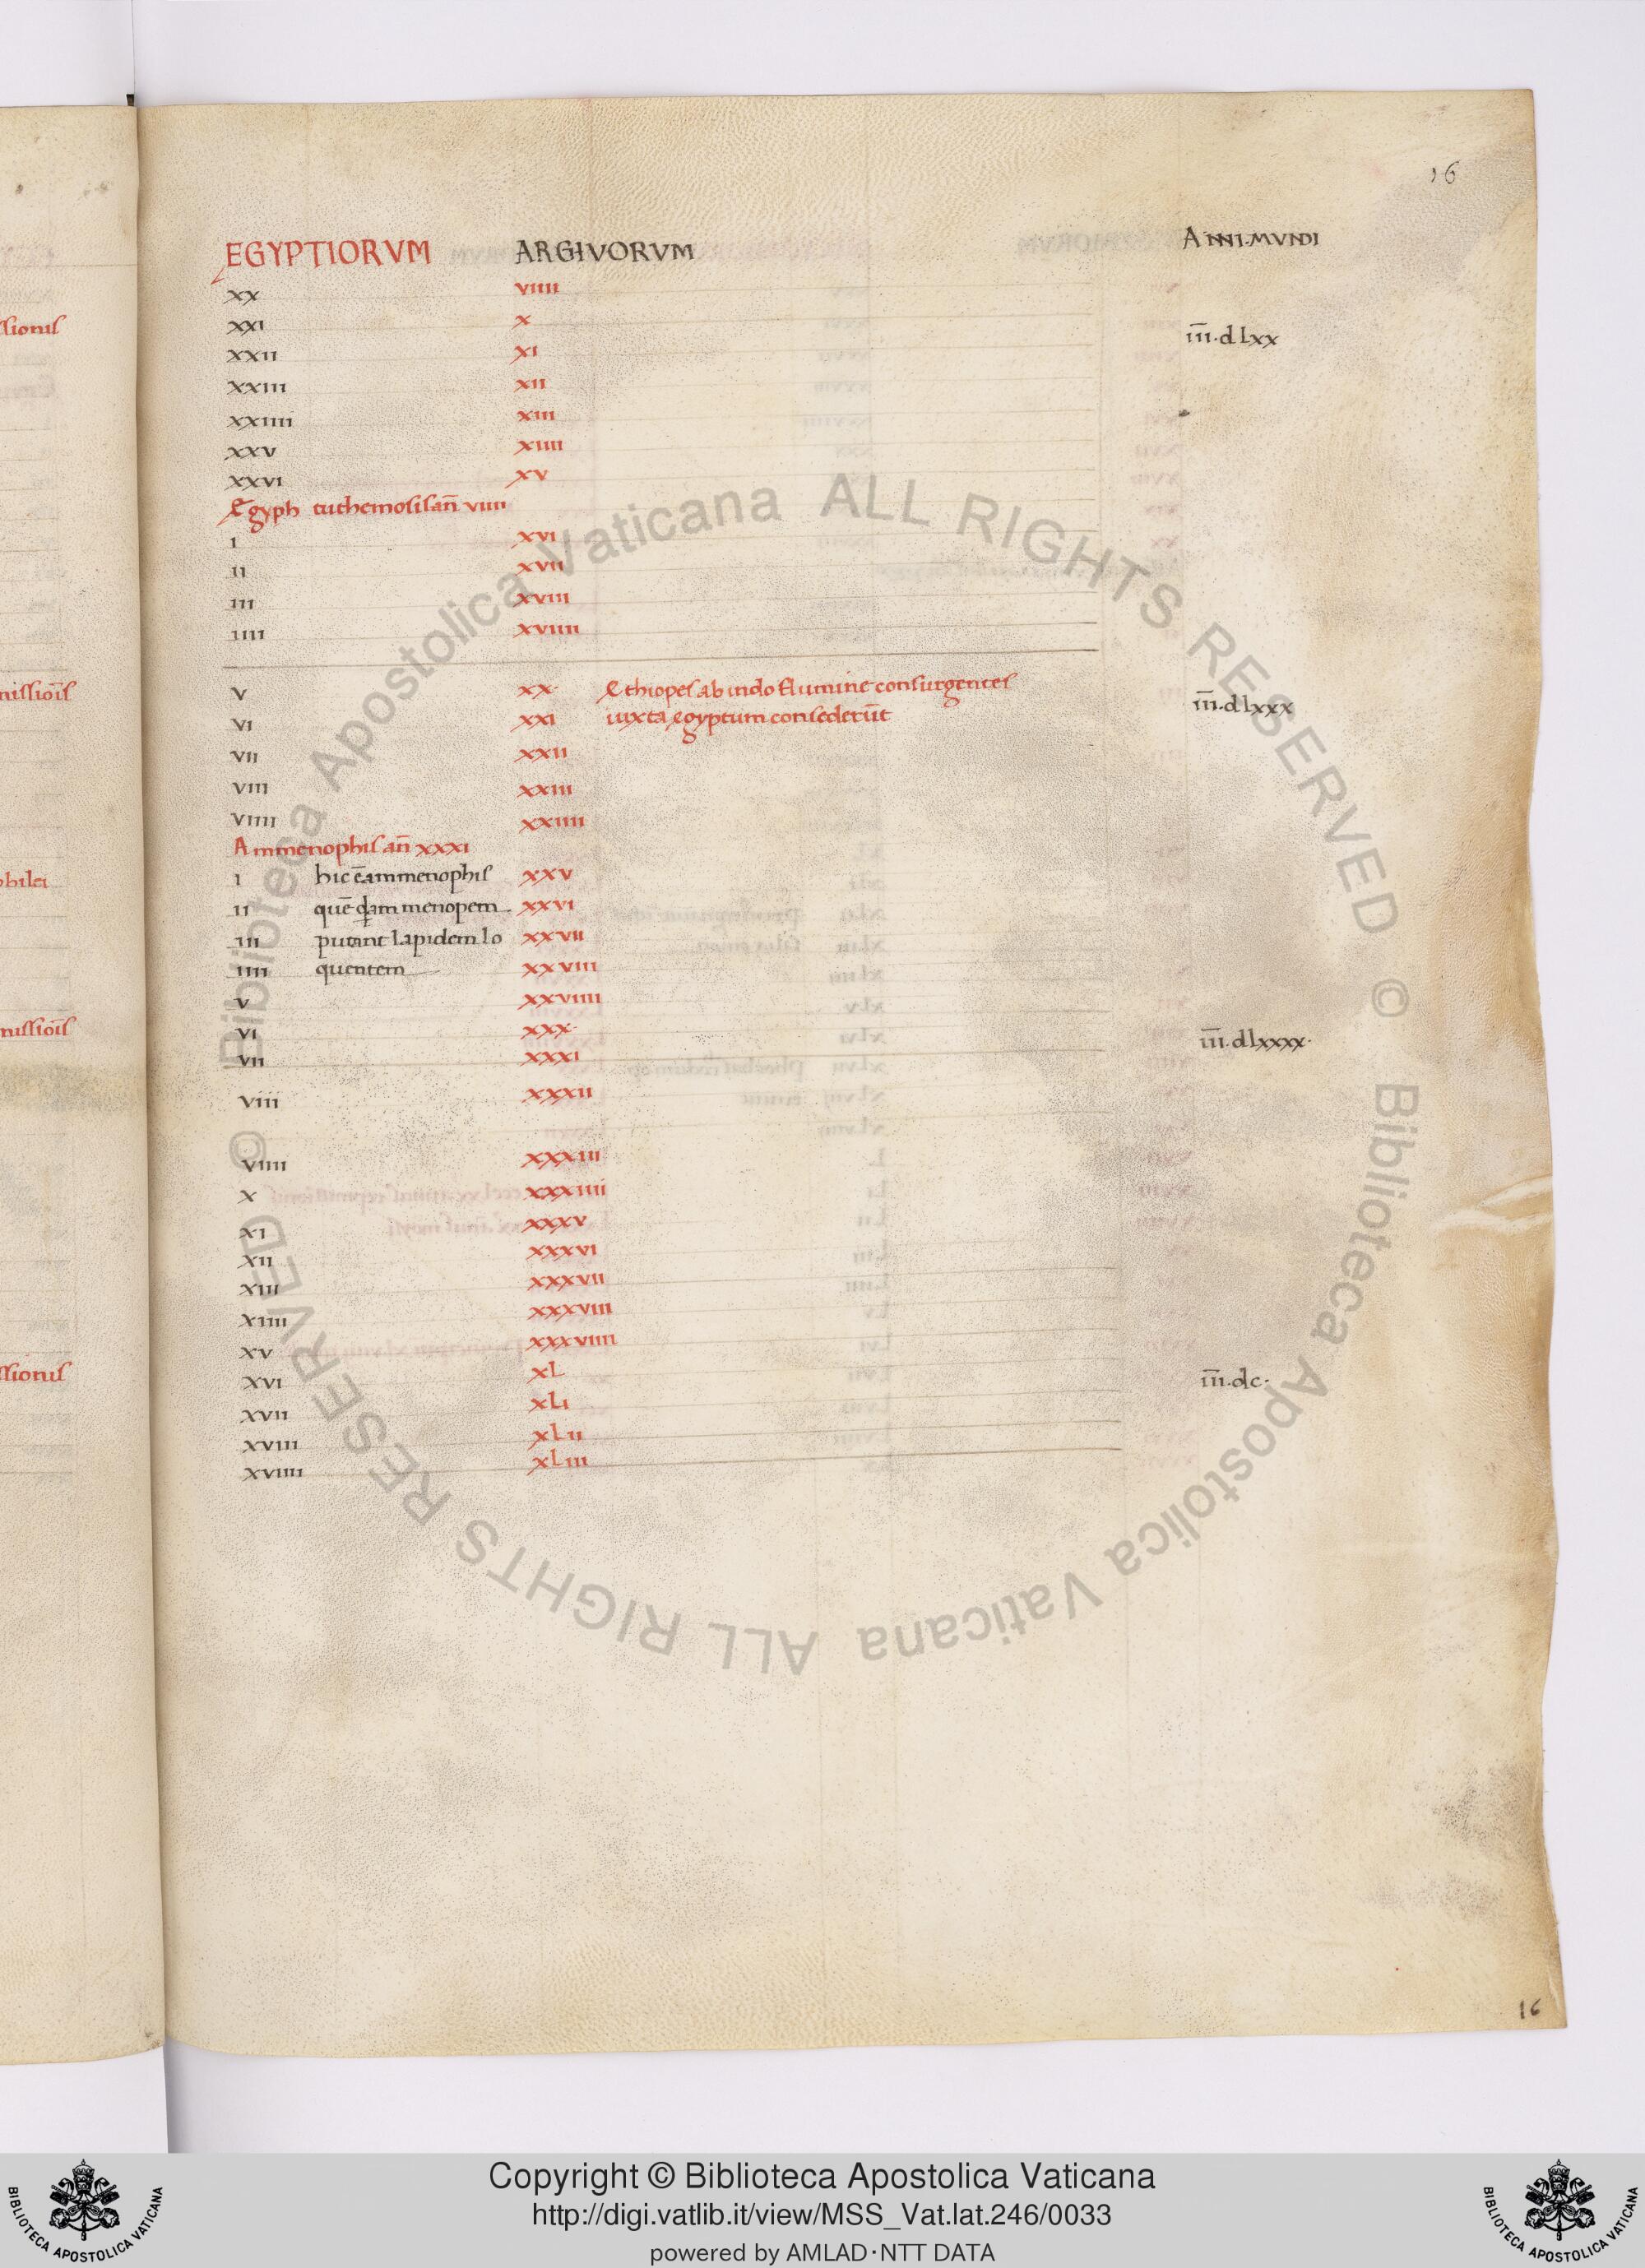 16
EGYPTIORVM ARGIVORVM ANNI.MVNDI
xx viiii
xxi x iii̅.dlxx
xxii xi
xxiii xii
xxiiii xiii
xxv xiiii
xxvi xv
Egypti tuthemosis an̅ viiii
i xvi
ii xvii
iii xviii
iiii xviiii
v xx Ethiopes ab indo flumine consurgentes
vi xxi iuxta egyptum consederu̅t iii̅.dlxxx
vii xxii
viii xxiii
viiii xxiiii
Ammenophis an̅ xxxi
i hic e̅ ammenophis xxv
ii que̅ qdam menopem xxvi
iii putant lapidem lo xxvii
iiii quentem xxviii
v xxviiii
vi xxx iii̅.dlxxxx.
vii xxxi
viii xxxii
viiii xxxiii
x xxxiiii
xi xxxv
xii xxxvi
xiii xxxvii
xiiii xxxviii
xv xxxviiii
xvi xL iii̅.dc.
xvii xLi
xviii xLii
xviiii xLiii
16
ssionis
missio̅is
bilei
missio̅is
ssionis
© Biblioteca Apostolica Vaticana ALL RIGHTS RESERVED © Biblioteca Apostolica Vaticana ALL RIGHTS RESERVED
BIBLIOTECA APOSTOLICA VATICANA
Copyright © Biblioteca Apostolica Vaticana
http://digi.vatlib.it/view/MSS_Vat.lat.246/0033
powered by AMLAD·NTT DATA
BIBLIOTECA APOSTOLICA VATICANA